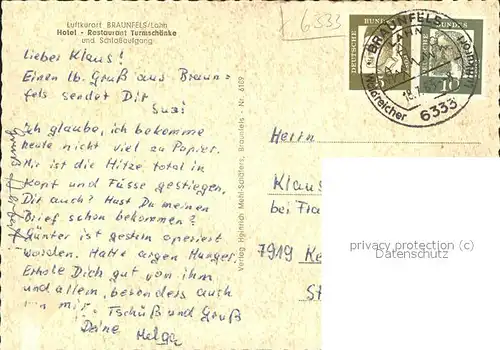 Luftkurort BRAUNFELS/Lahn
Hotel - Restaurant Turmschänke
und Schloßaufgang
6333
Lieber Klaus!
Einen lb. Gruß aus Braun-
fels sendet Dir
Susi
Ich glaube, ich bekomme
heute nicht viel zu Papier.
Mir ist die Hitze total in
Kopf und Füsse gestiegen.
Dir auch? Hast Du meinen
Brief schon bekommen?
Günter ist gestern operiert
worden. Hatte argen Hunger.
Erhole Dich gut von ihm
und allem, besonders auch
von mir. Tschüß und Gruß
Deine Helga
Verlag Heinrich Mehl-Salders, Braunfels - Nr. 6189
DEUTSCHE BUNDES
DEUTSCHE BUNDES
10
BRAUNFELS
LAHN
Waldreicher
6333
Herrn
Klaus
bei Fra
7919 Ke
St
privacy protection (c)